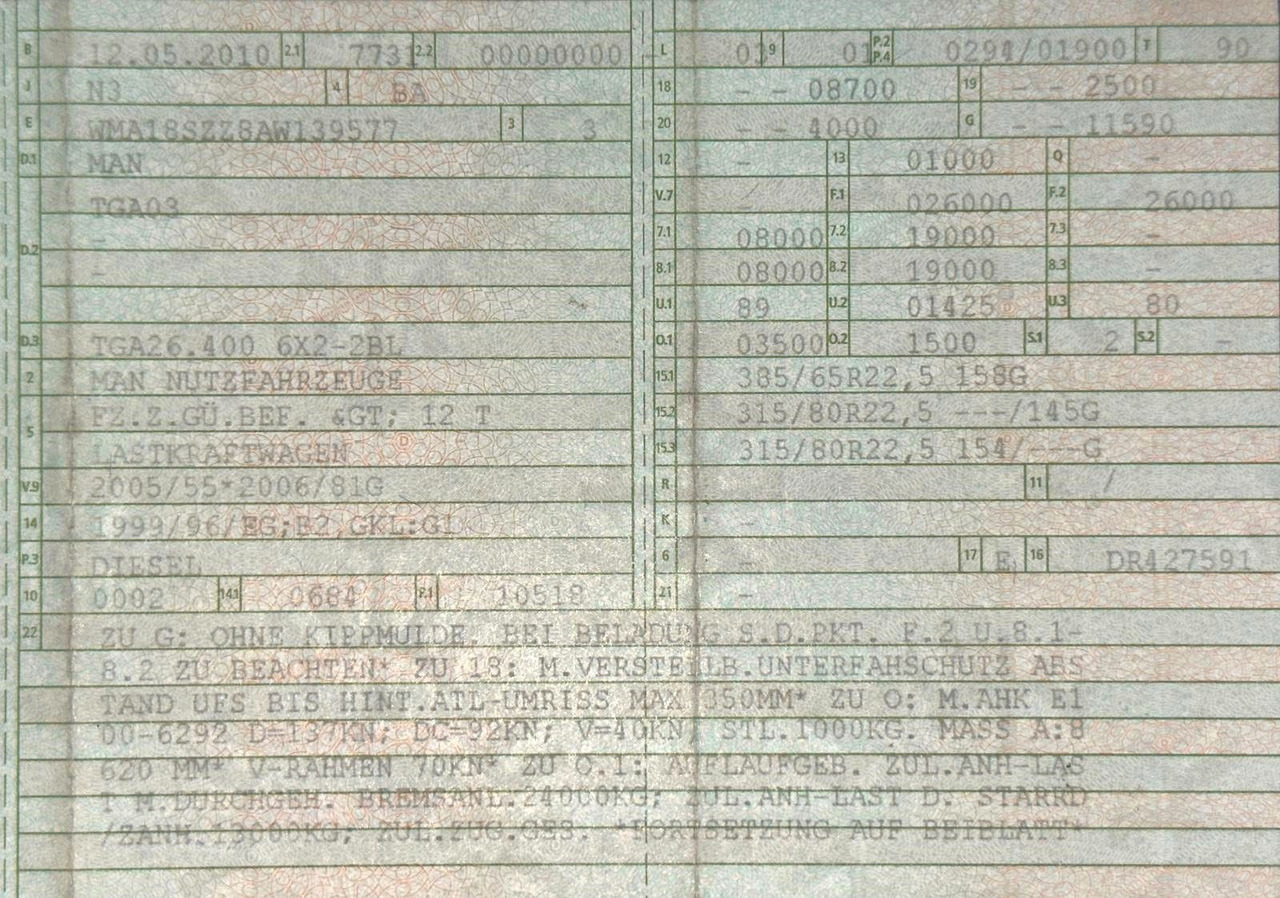 B 12.05.2010 2.1 7731 2.2 00000000
J N3 4 BA
E WMA18SZZ8AW139577 3 3
D.1 MAN
TGA03
D.2 -
-
D.3 TGA26.400 6X2-2BL
2 MAN NUTZFAHRZEUGE
5 FZ.Z.GÜ.BEF. &GT; 12 T
LASTKRAFTWAGEN
V.9 2005/55*2006/81G
14 1999/96/EG;B2,GKL:G1
P.3 DIESEL
10 0002 14.1 0684 P.1 10518
L 03 9 01 P.2 P.4 0294/01900 T 90
18 - - 08700 19 - - 2500
20 - - 4000 G - - 11590
12 - 13 01000 Q -
V.7 - F.1 026000 F.2 26000
7.1 08000 7.2 19000 7.3 -
8.1 08000 8.2 19000 8.3 -
U.1 89 U.2 01425 U.3 80
O.1 03500 O.2 1500 S.1 2 S.2 -
15.1 385/65R22,5 158G
15.2 315/80R22,5 ---/145G
15.3 315/80R22,5 154/---G
R 11 /
K -
6 - 17 E 16 DR427591
21 -
22 ZU G: OHNE KIPPMULDE. BEI BELADUNG S.D.PKT. F.2 U.8.1-
8.2 ZU BEACHTEN* ZU 18: M.VERSTELLB.UNTERFAHSCHUTZ ABS
TAND UFS BIS HINT.ATL-UMRISS MAX 350MM* ZU O: M.AHK E1
00-6292 D=137KN; DC=92KN; V=40KN, STL.1000KG. MASS A:8
620 MM* V-RAHMEN 70KN* ZU O.1: AUFLAUFGEB. ZUL.ANH-LAS
T M.DURCHGEH. BREMSANL.24000KG; ZUL.ANH-LAST D. STARRD
/ZANH.13000KG; ZUL.ZUG.GES. *FORTSETZUNG AUF BEIBLATT*